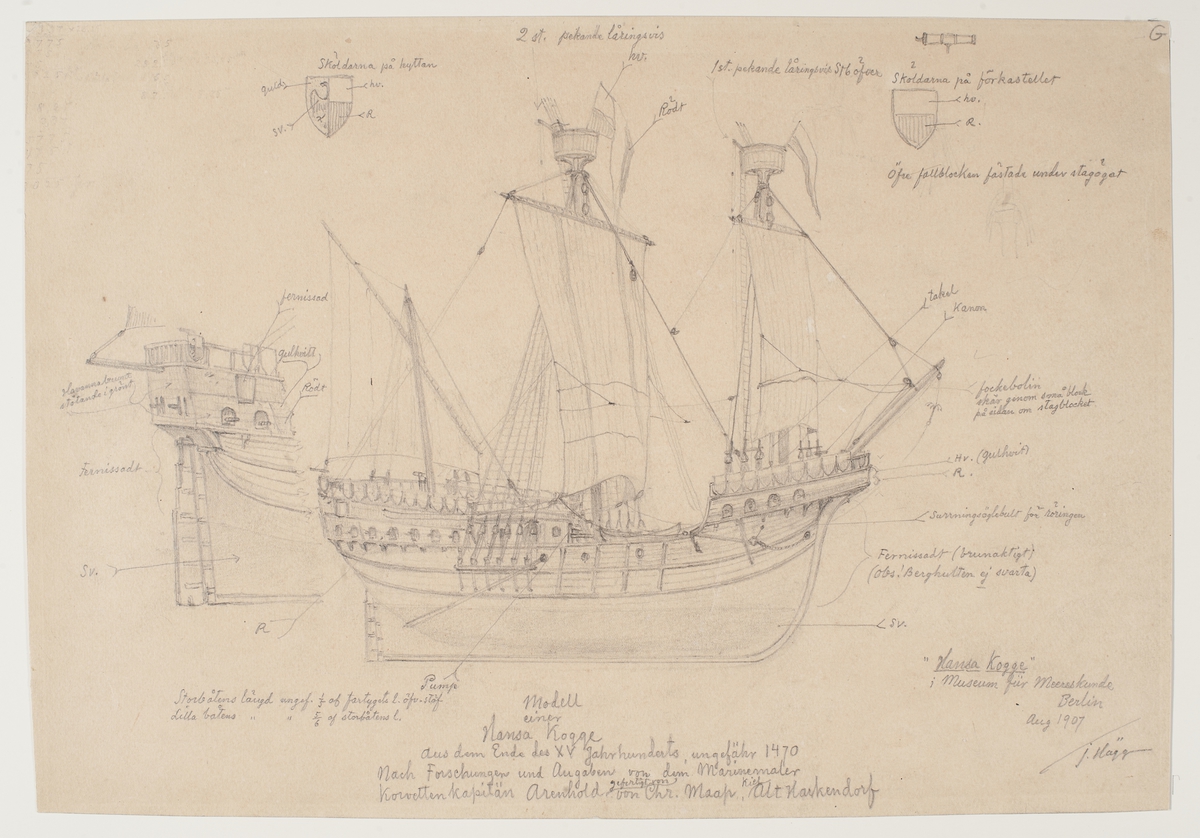 2 st. pekande låringsvis
hv.
G
Sköldarna på hyttan
guld
hv.
sv.
R
1 st. pekande låringsvis Stb öfver
Rödt
Sköldarna på förkastellet
hv.
R.
Öfre fallblocken fästade under stagögat
fernissad
gulhvitt
Rödt
stötande i grönt
Fernissadt
Sv.
R
takel
Kanon
fockebolin
skär genom små block
på sidan om stagblocket
Hv. (gulhvit)
R.
Surrningsöglebult för
Fernissadt (brunaktigt)
(Obs! Berghulten ej svarta)
Sv.
Pump
Storbåtens längd ungef. af fartygets l. öfv. stäf
Lilla båtens " " 5/6 af storbåtens l.
"Hansa Kogge"
i Museum für Meereskunde
Berlin
Aug 1907
J. Hägg
Modell
einer
Hansa Kogge
aus dem Ende des XV Jahrhunderts, ungefähr 1470
Nach Forschungen und Angaben von dem Marinemaler
Korvettenkapitän Arenhold gefertigt von Chr. Maap, Kiel, Alt Harkendorf